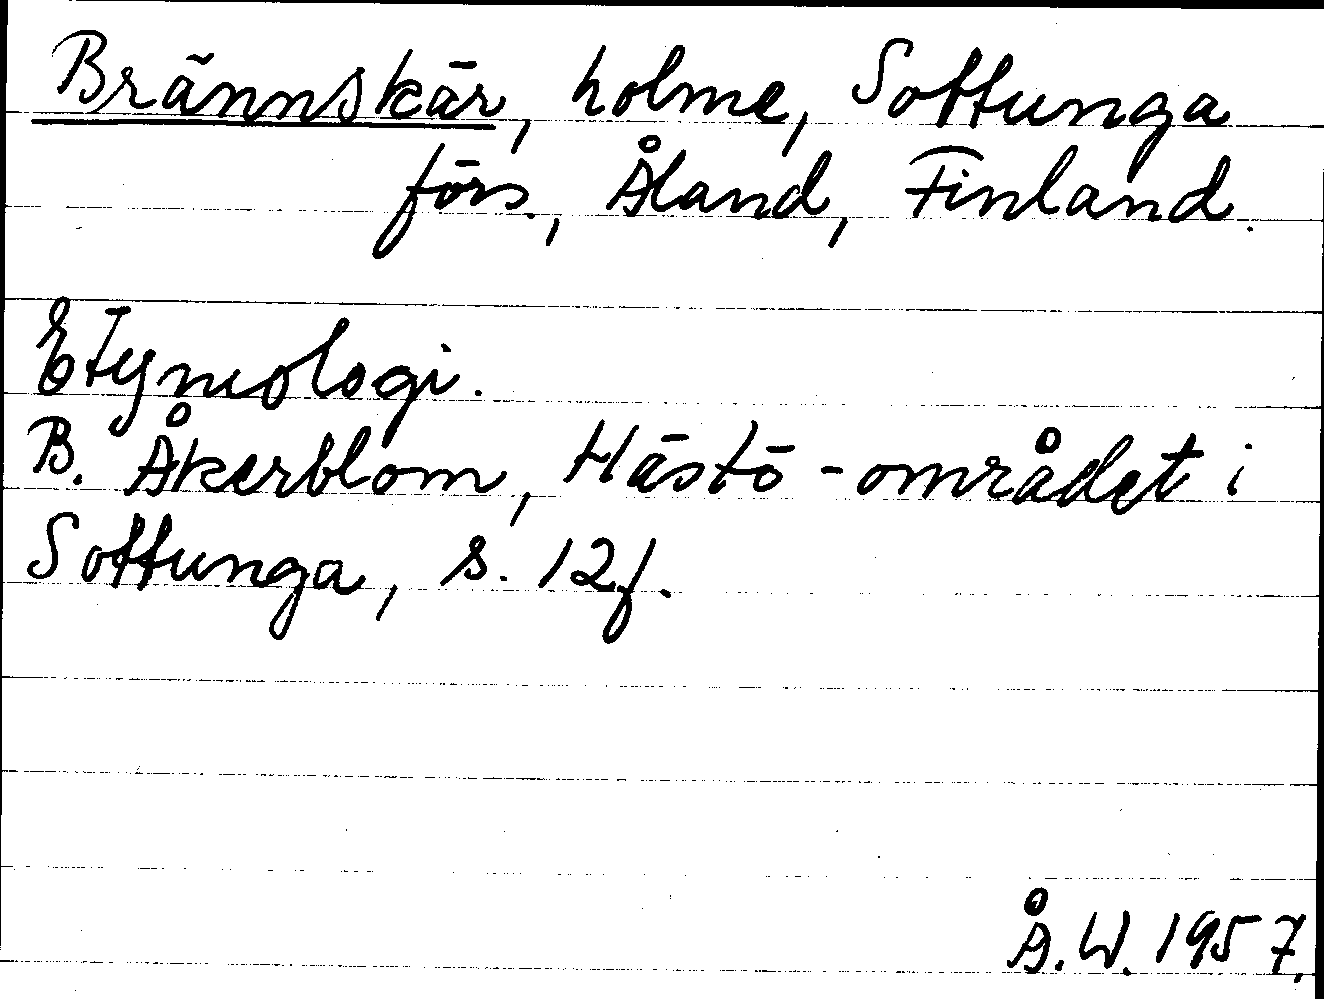 Brännskär, holme, Sottunga
förs., Åland, Finland.
Etymologi.
B. Åkerblom, Hästö-området i
Sottunga, s. 12f.
Å.W. 1957.